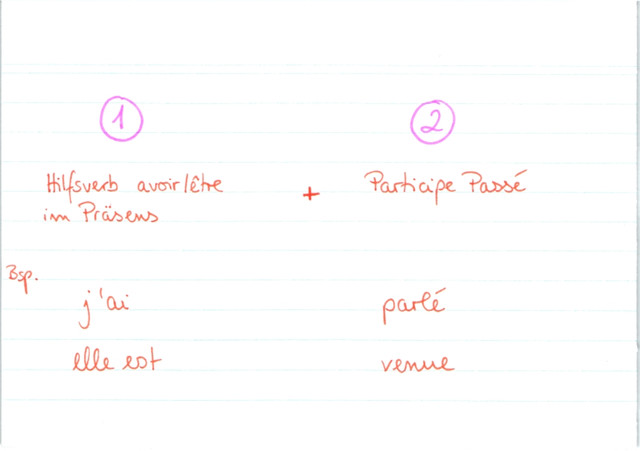 1 2
Hilfsverb avoir/être + Participe Passé
im Präsens
Bsp.
j'ai parlé
elle est venue